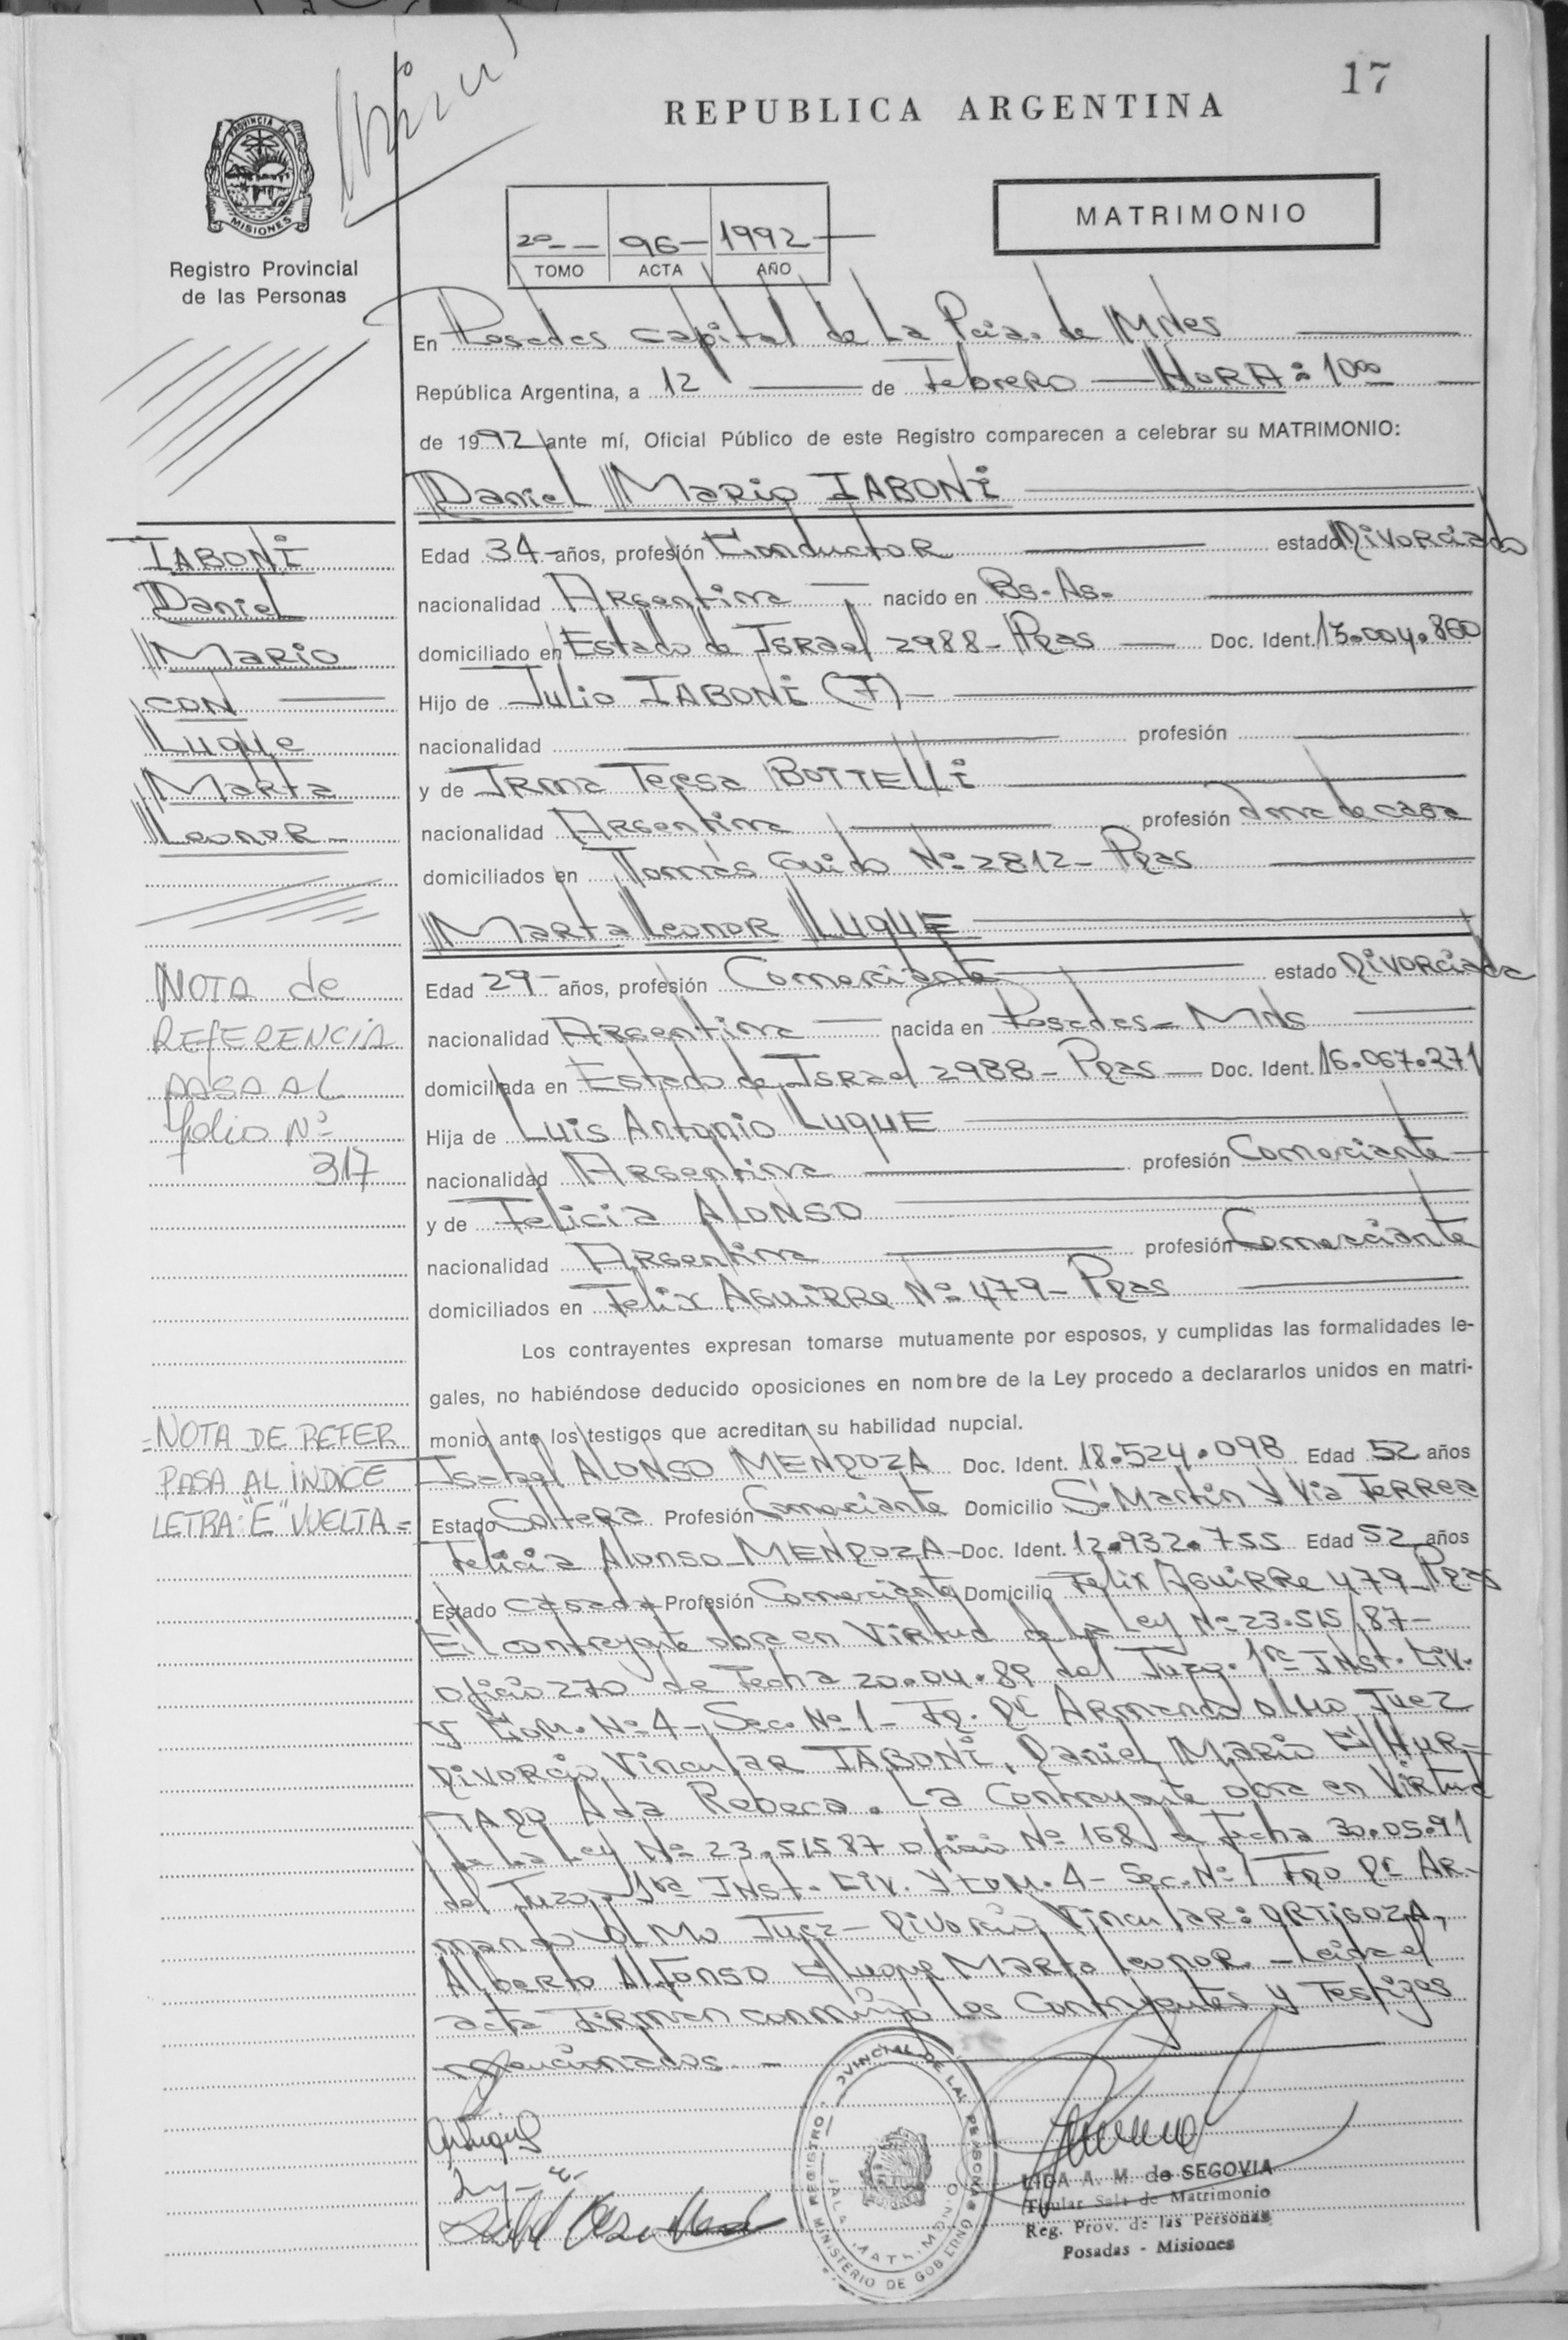 17
REPUBLICA ARGENTINA
PROVINCIA DE
MISIONES
Registro Provincial
de las Personas
2º — 96 — 1992 —
TOMO ACTA AÑO
MATRIMONIO
En Posadas Capital de La Pcia. de Mnes
República Argentina, a 12 de Febrero — HORA: 10ºº
de 1992 ante mí, Oficial Público de este Registro comparecen a celebrar su MATRIMONIO:
Daniel Mario IABONI
Edad 34 años, profesión Conductor estado Divorciado
nacionalidad Argentina nacido en Bs. As.
domiciliado en Estado de Israel 2988 - Pdas — Doc. Ident. 13.004.860
Hijo de Julio IABONI (F)
nacionalidad profesión
y de Irma Teresa BOTTELLI
nacionalidad Argentina profesión Ama de casa
domiciliados en Tomás Guido Nº 2812 - Pdas
Marta Leonor LUQUE
Edad 29 años, profesión Comerciante estado Divorciada
nacionalidad Argentina nacida en Posadas - Mns
domiciliada en Estado de Israel 2988 - Pdas — Doc. Ident. 16.067.271
Hija de Luis Antonio LUQUE
nacionalidad Argentina profesión Comerciante
y de Felicia ALONSO
nacionalidad Argentina profesión Comerciante
domiciliados en Felix Aguirre Nº 479 - Pdas
Los contrayentes expresan tomarse mutuamente por esposos, y cumplidas las formalidades le-
gales, no habiéndose deducido oposiciones en nombre de la Ley procedo a declararlos unidos en matri-
monio ante los testigos que acreditan su habilidad nupcial.
Isabel ALONSO MENDOZA Doc. Ident. 18.524.098 Edad 52 años
Estado Soltera Profesión Comerciante Domicilio S. Martin y Via Ferrea
Felicia Alonso MENDOZA - Doc. Ident. 12.932.755 Edad 52 años
Estado Casada Profesión Comerciante Domicilio Felix Aguirre 479 - Pdas
El contrayente obra en Virtud de la Ley Nº 23.515/87 -
oficio 270 de Fecha 20.04.89 del Juzg. 1ra Inst. Civ.
y Com. Nº 4 - Sec. Nº 1 - Dr Armando Olmo Juez
Divorcio Vincular IABONI, Daniel Mario C/ HUR-
TADO Ada Rebeca. La Contrayente obra en Virtud
de La Ley Nº 23.51587 oficio Nº 168 de fecha 30.05.91
del Juzg. 1ra Inst. Civ. y Com. 4 - Sec. Nº 1 Fdo Dr Ar-
mando Olmo Juez - Divorcio Vincular: ORTIGOZA,
Alberto Alfonso C/ Luque Marta Leonor - Leida el
acta Firman conmigo los Contrayentes y Testigos
mencionados. -
IABONI
Daniel
Mario
CON
Luque
Marta
Leonor -
NOTA de
REFERENCIA
PASA AL
folio Nº
317
= NOTA DE REFER
PASA AL INDICE
LETRA: "E" VUELTA =
REGISTRO PROVINCIAL DE LAS PERSONAS
SALA MATRIMONIO
MINISTERIO DE GOBIERNO
LIGA A. M. de SEGOVIA
Titular Sala de Matrimonio
Reg. Prov. de las Personas
Posadas - Misiones